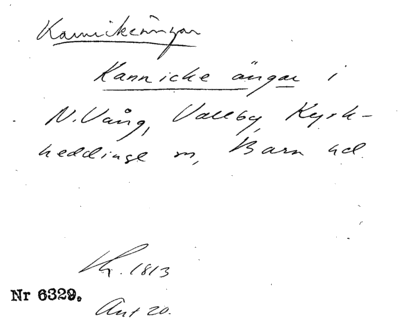 Kannikeängar
Kannicke ängar i
N. Vång, Vallby, Kyrk-
heddinge m, Bara hd
1813
Nr 6329.
Ant 20.